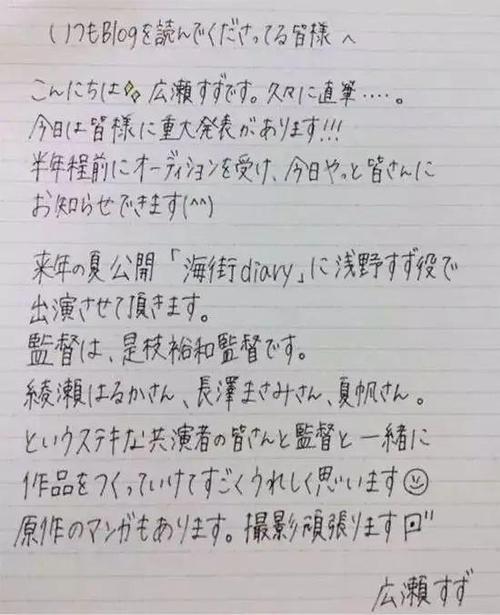 いつもBlogを読んでくださってる皆様へ
こんにちは✨広瀬すずです。久々に直筆....。
今日は皆様に重大発表があります!!!
半年程前にオーディションを受け、今日やっと皆さんに
お知らせできます(^^)
来年の夏公開「海街diary」に浅野すず役で
出演させて頂きます。
監督は、是枝裕和監督です。
綾瀬はるかさん、長澤まさみさん、夏帆さん。
というステキな共演者の皆さんと監督と一緒に
作品をつくっていけてすごくうれしく思います☺
原作のマンガもあります。撮影頑張ります
広瀬すず